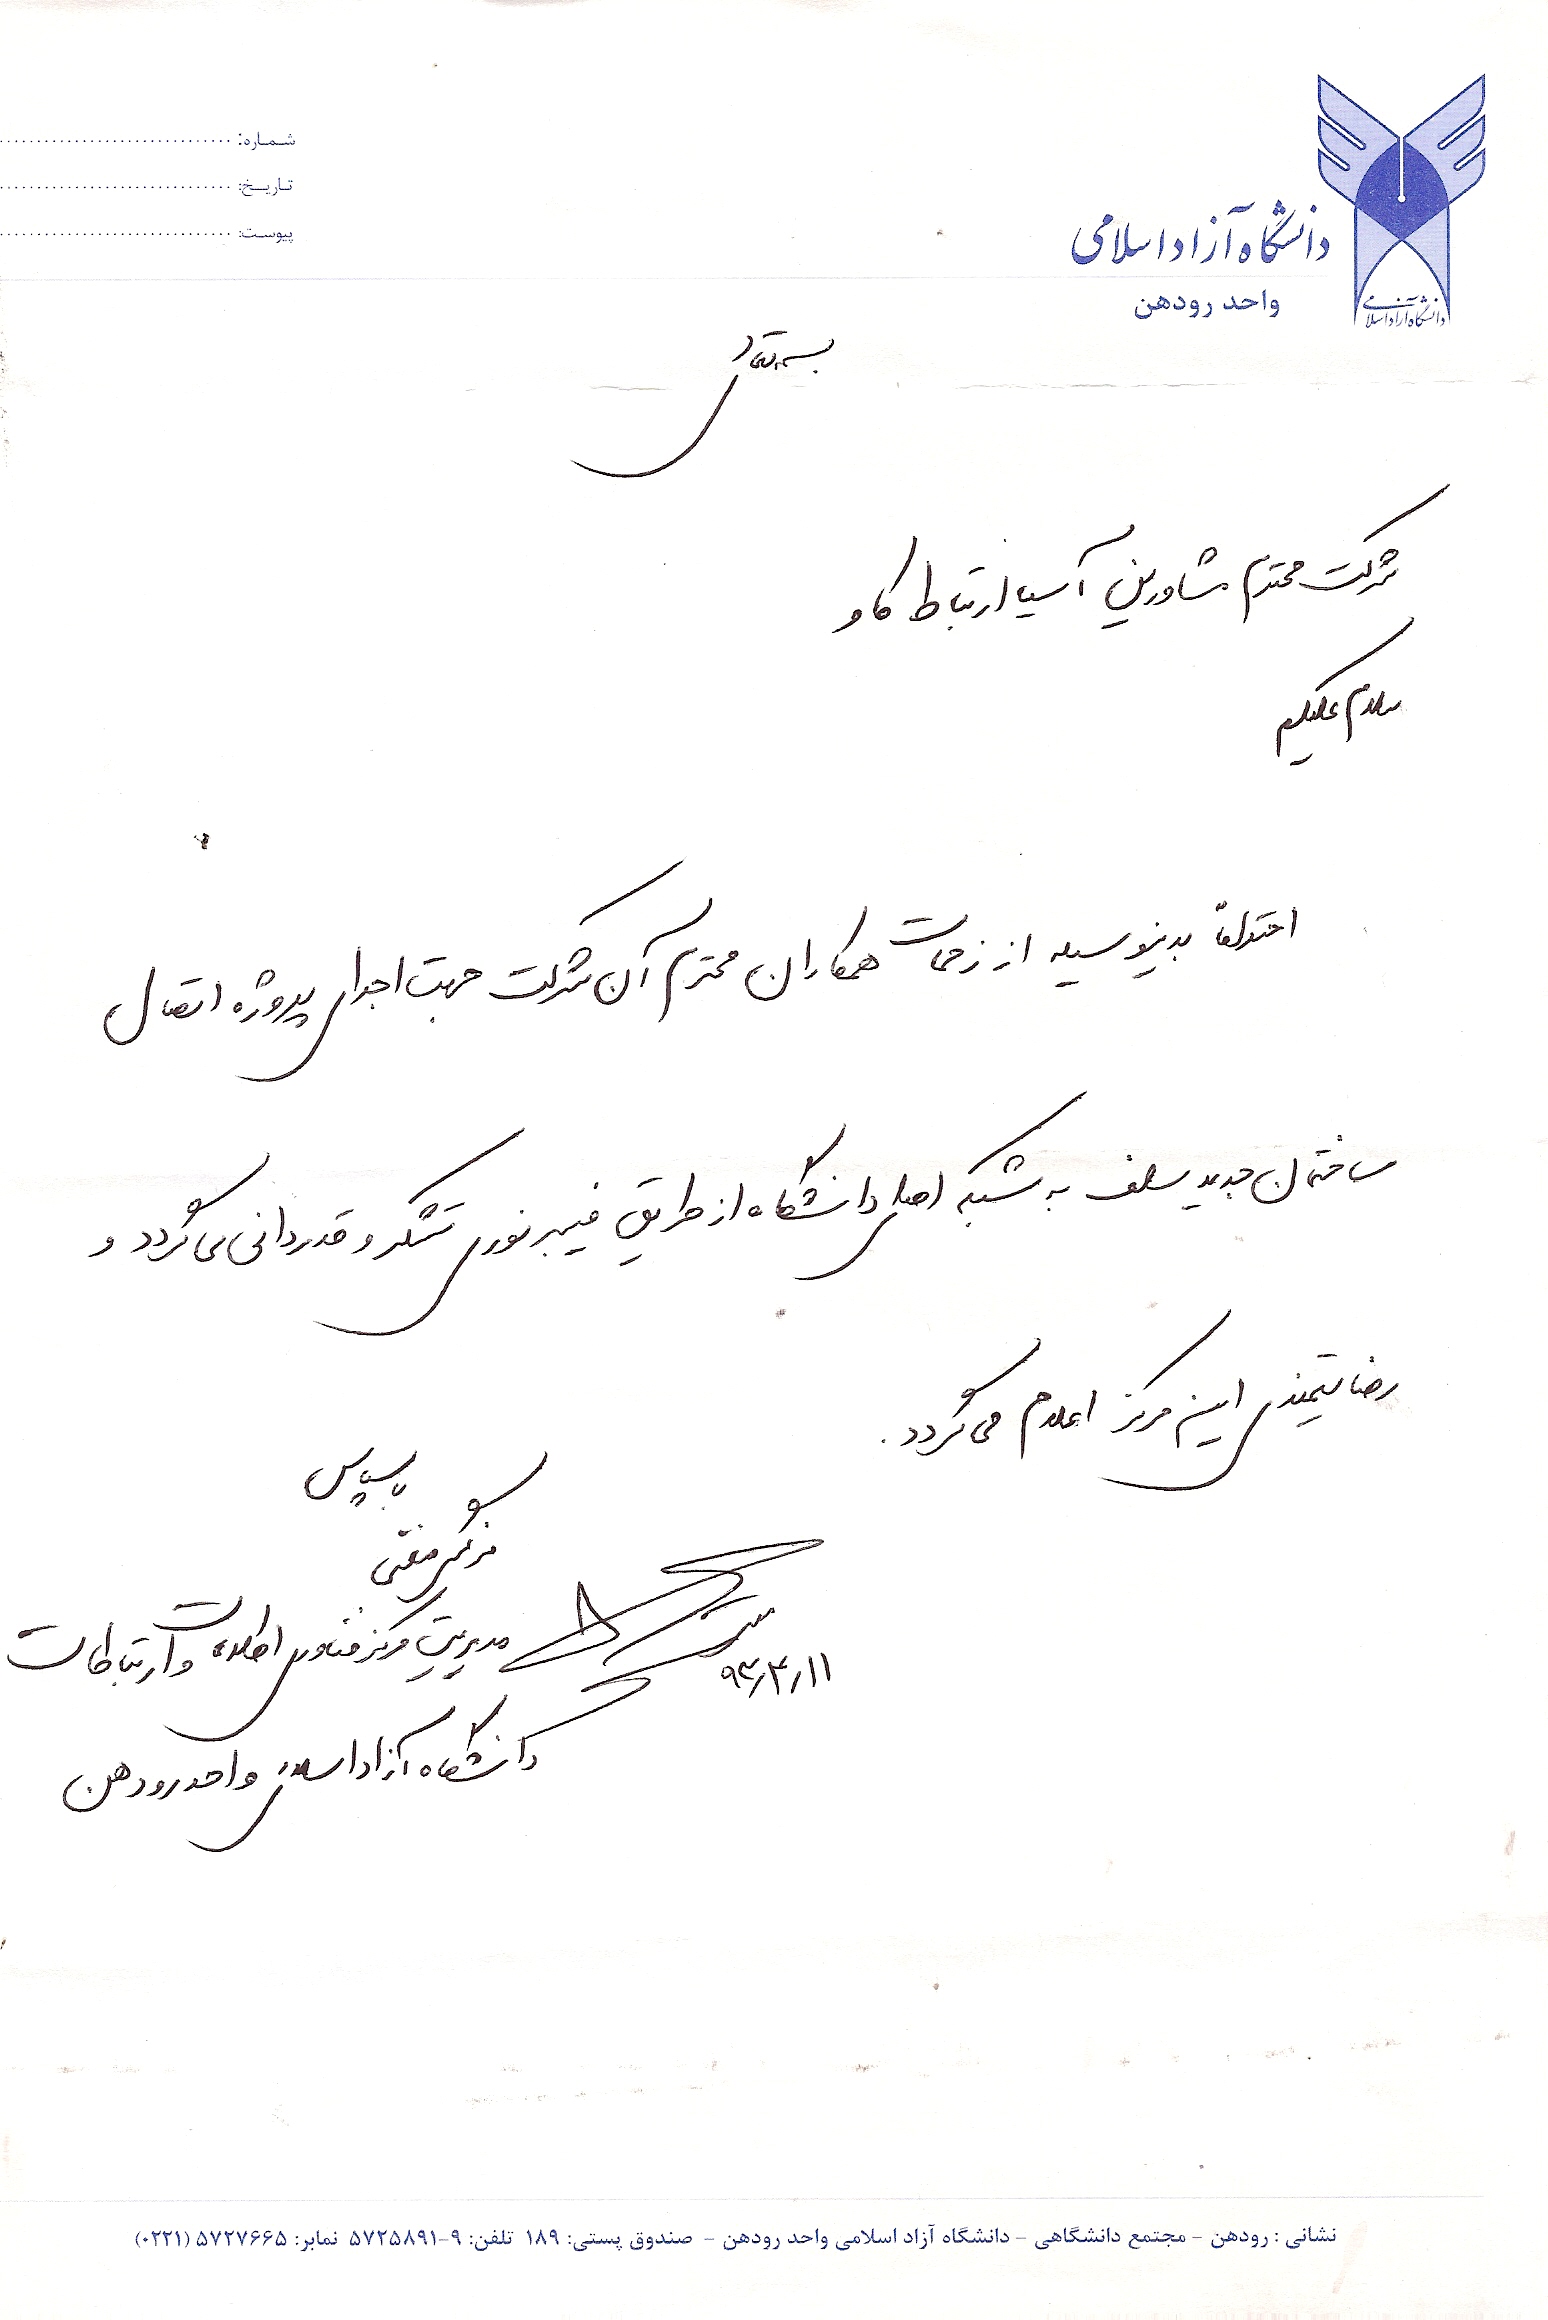 شماره: ..............................
تاریخ: ..............................
پیوست: ..............................
دانشگاه آزاد اسلامی
واحد رودهن
دانشگاه آزاد اسلامی
بسمه تعالی
شرکت محترم مشاورین آسیا ارتباط کاو
سلام علیکم
احتراماً بدینوسیله از زحمات همکاران محترم آن شرکت جهت اجرای پروژه اتصال
ساختمان جدید سلف به شبکه اصلی دانشگاه از طریق فیبر نوری تشکر و قدردانی می گردد و
رضایتمندی این مرکز اعلام می گردد.
با سپاس
مدیریت مرکز فناوری اطلاعات و ارتباطات
۹۳/۴/۱۱
دانشگاه آزاد اسلامی واحد رودهن
نشانی : رودهن - مجتمع دانشگاهی - دانشگاه آزاد اسلامی واحد رودهن - صندوق پستی: ۱۸۹ تلفن: ۹-۵۷۲۵۸۹۱ نمابر: ۵۷۲۷۶۶۵ (۰۲۲۱)